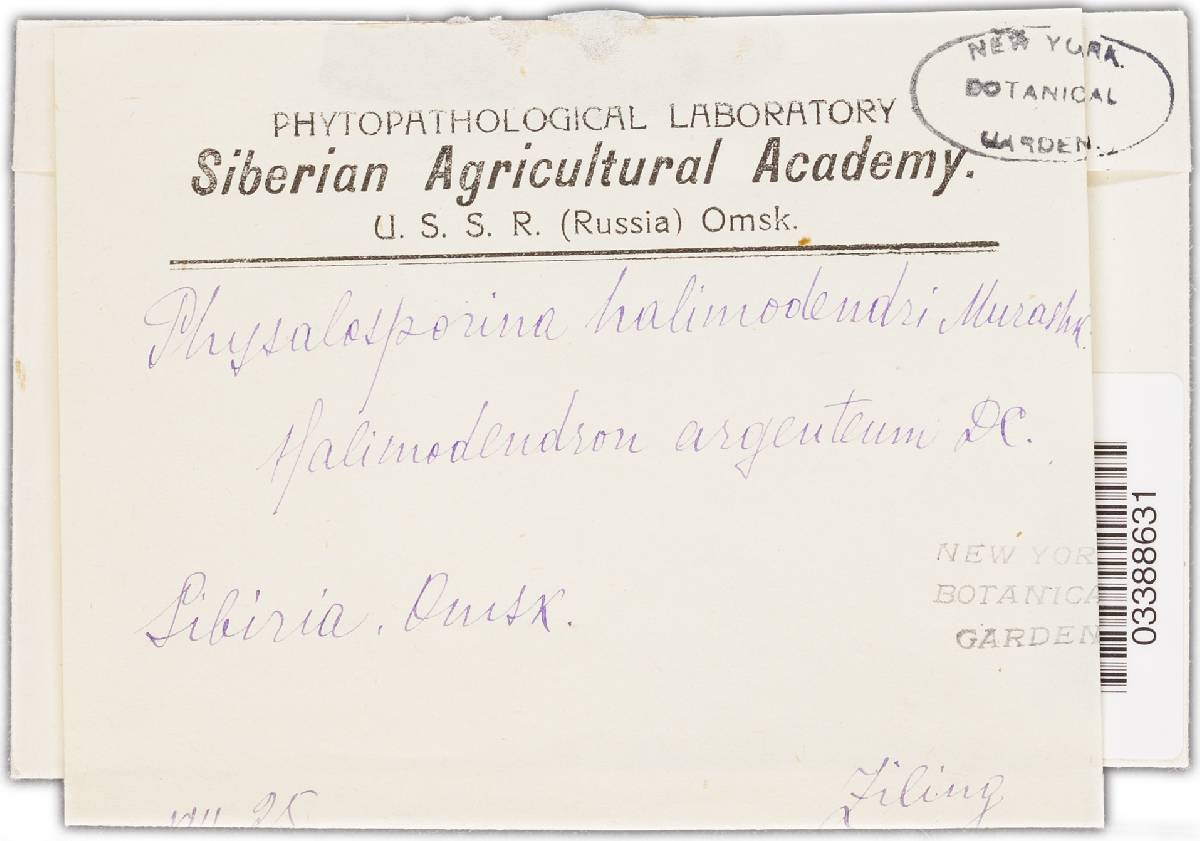 NEW YORK
BOTANICAL
GARDEN.
PHYTOPATHOLOGICAL LABORATORY
Siberian Agricultural Academy.
U. S. S. R. (Russia) Omsk.
Physalosporina halimodendri Murashk.
Halimodendron argenteum DC.
NEW YOR
BOTANICA
GARDEN
03388631
Sibiria. Omsk.
Ziling
VII 25